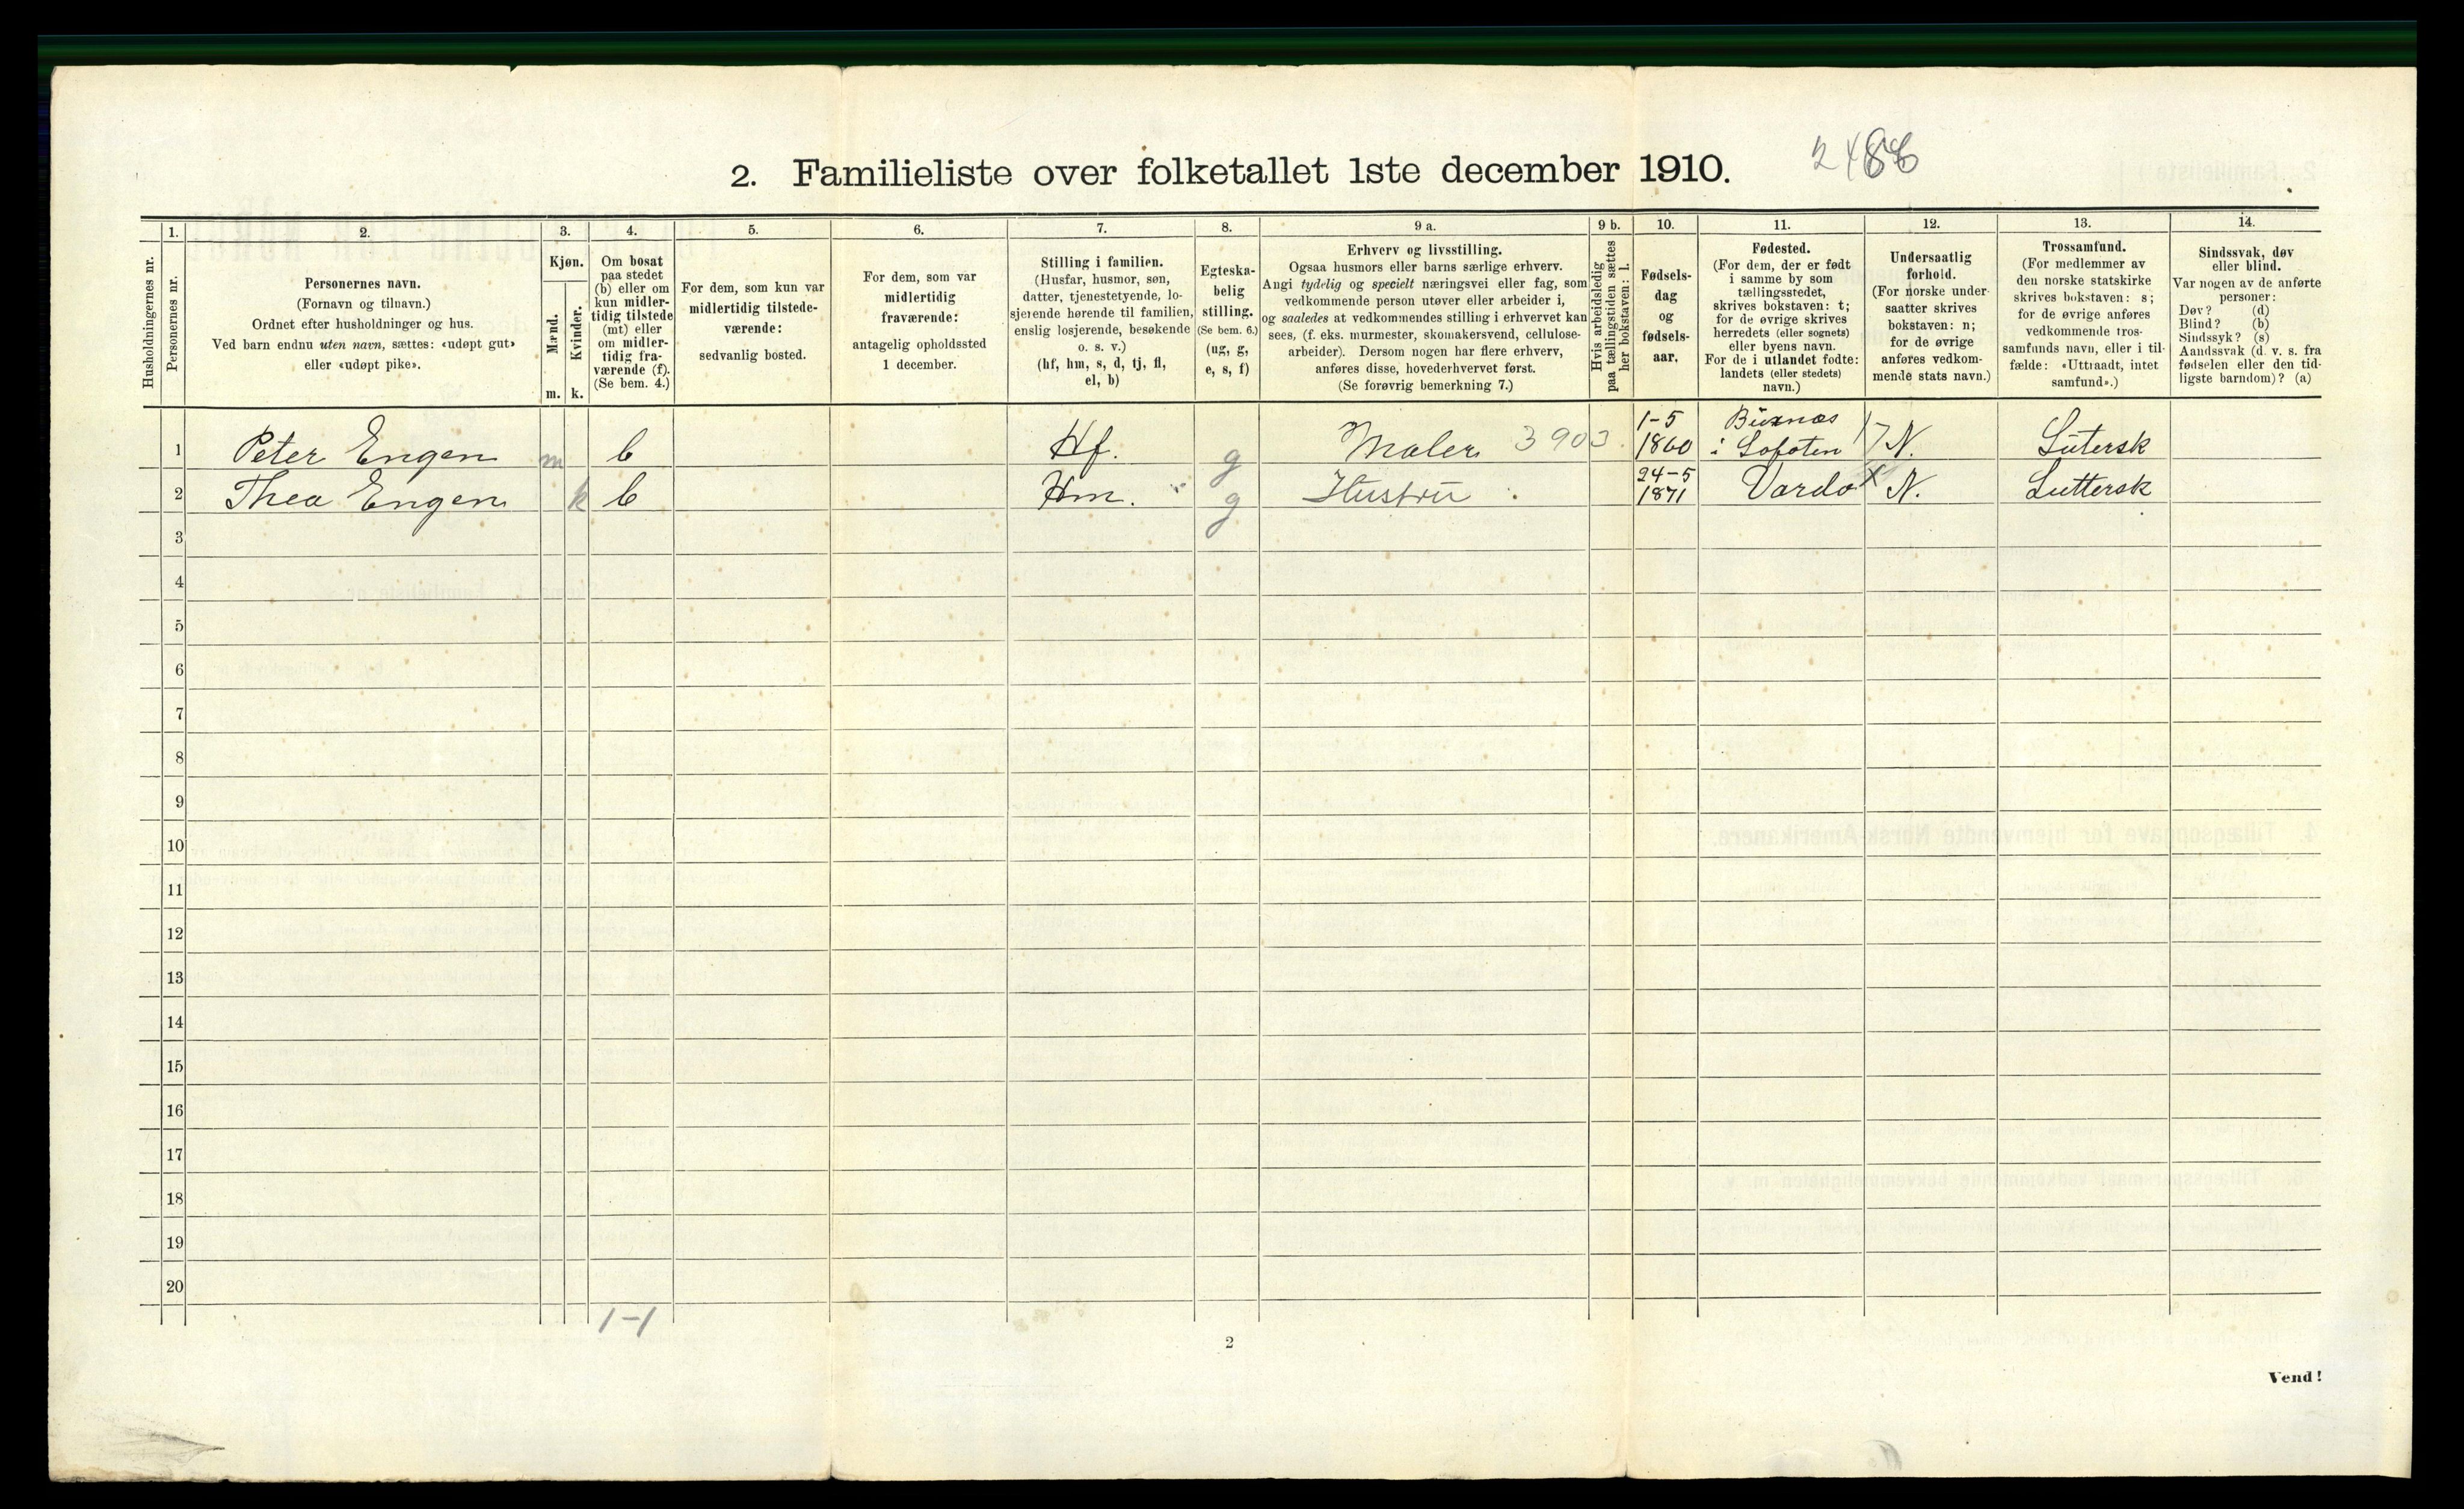 2. Familieliste over folketallet 1ste december 1910.
Husholdningernes nr.
1.
Personernes nr.
2.
Personernes navn.
(Fornavn og tilnavn.)
Ordnet efter husholdninger og hus.
Ved barn endnu uten navn, sættes: «udøpt gut»
eller «udøpt pike».
3.
Kjøn.
Mænd.
Kvinder.
m. k.
4.
Om bosat
paa stedet
(b) eller om
kun midler-
tidig tilstede
(mt) eller
om midler-
tidig fra-
værende (f).
(Se bem. 4.)
5.
For dem, som kun var
midlertidig tilstede-
værende:
sedvanlig bosted.
6.
For dem, som var
midlertidig
fraværende:
antagelig opholdssted
1 december.
7.
Stilling i familien.
(Husfar, husmor, søn,
datter, tjenestetyende, lo-
sjerende hørende til familien,
enslig losjerende, besøkende
o. s. v.)
(hf, hm, s, d, tj, fl,
el, b)
8.
Egteska-
belig
stilling.
(Se bem. 6.)
(ug, g,
e, s, f)
9 a.
Erhverv og livsstilling.
Ogsaa husmors eller barns særlige erhverv.
Angi tydelig og specielt næringsvei eller fag, som
vedkommende person utøver eller arbeider i,
og saaledes at vedkommendes stilling i erhvervet kan
sees, (f. eks. murmester, skomakersvend, cellulose-
arbeider). Dersom nogen har flere erhverv,
anføres disse, hovederhvervet først.
(Se forøvrig bemerkning 7.)
9 b.
Hvis arbeidsledig
paa tællingstiden sættes
her bokstaven: l.
10.
Fødsels-
dag
og
fødsels-
aar.
11.
Fødested.
(For dem, der er født
i samme by som
tællingsstedet,
skrives bokstaven: t;
for de øvrige skrives
herredets (eller sognets)
eller byens navn.
For de i utlandet fødte:
landets (eller stedets)
navn.)
12.
Undersaatlig
forhold.
(For norske under-
saatter skrives
bokstaven: n;
for de øvrige
anføres vedkom-
mende stats navn.)
13.
Trossamfund.
(For medlemmer av
den norske statskirke
skrives bokstaven: s;
for de øvrige anføres
vedkommende tros-
samfunds navn, eller i til-
fælde: «Uttraadt, intet
samfund».)
14.
Sindssvak, døv
eller blind.
Var nogen av de anførte
personer:
Døv? (d)
Blind? (b)
Sindssyk? (s)
Aandssvak (d. v. s. fra
fødselen eller den tid-
ligste barndom)? (a)
1 Peter Engen m b Hf. g Maler 3903. 1-5 1860 i Lofoten 17 N. Lutersk
2 Thea Engen k b Hm. g Hustru 24-5 1871 Vardø x N. Luttersk
3
4
5
6
7
8
9
10
11
12
13
14
15
16
17
18
19
20
1-1
2
Vend!